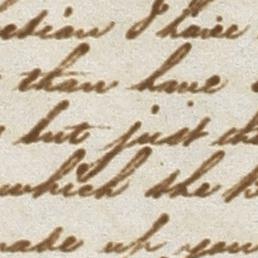 I have
than have
but just
which she
make up your